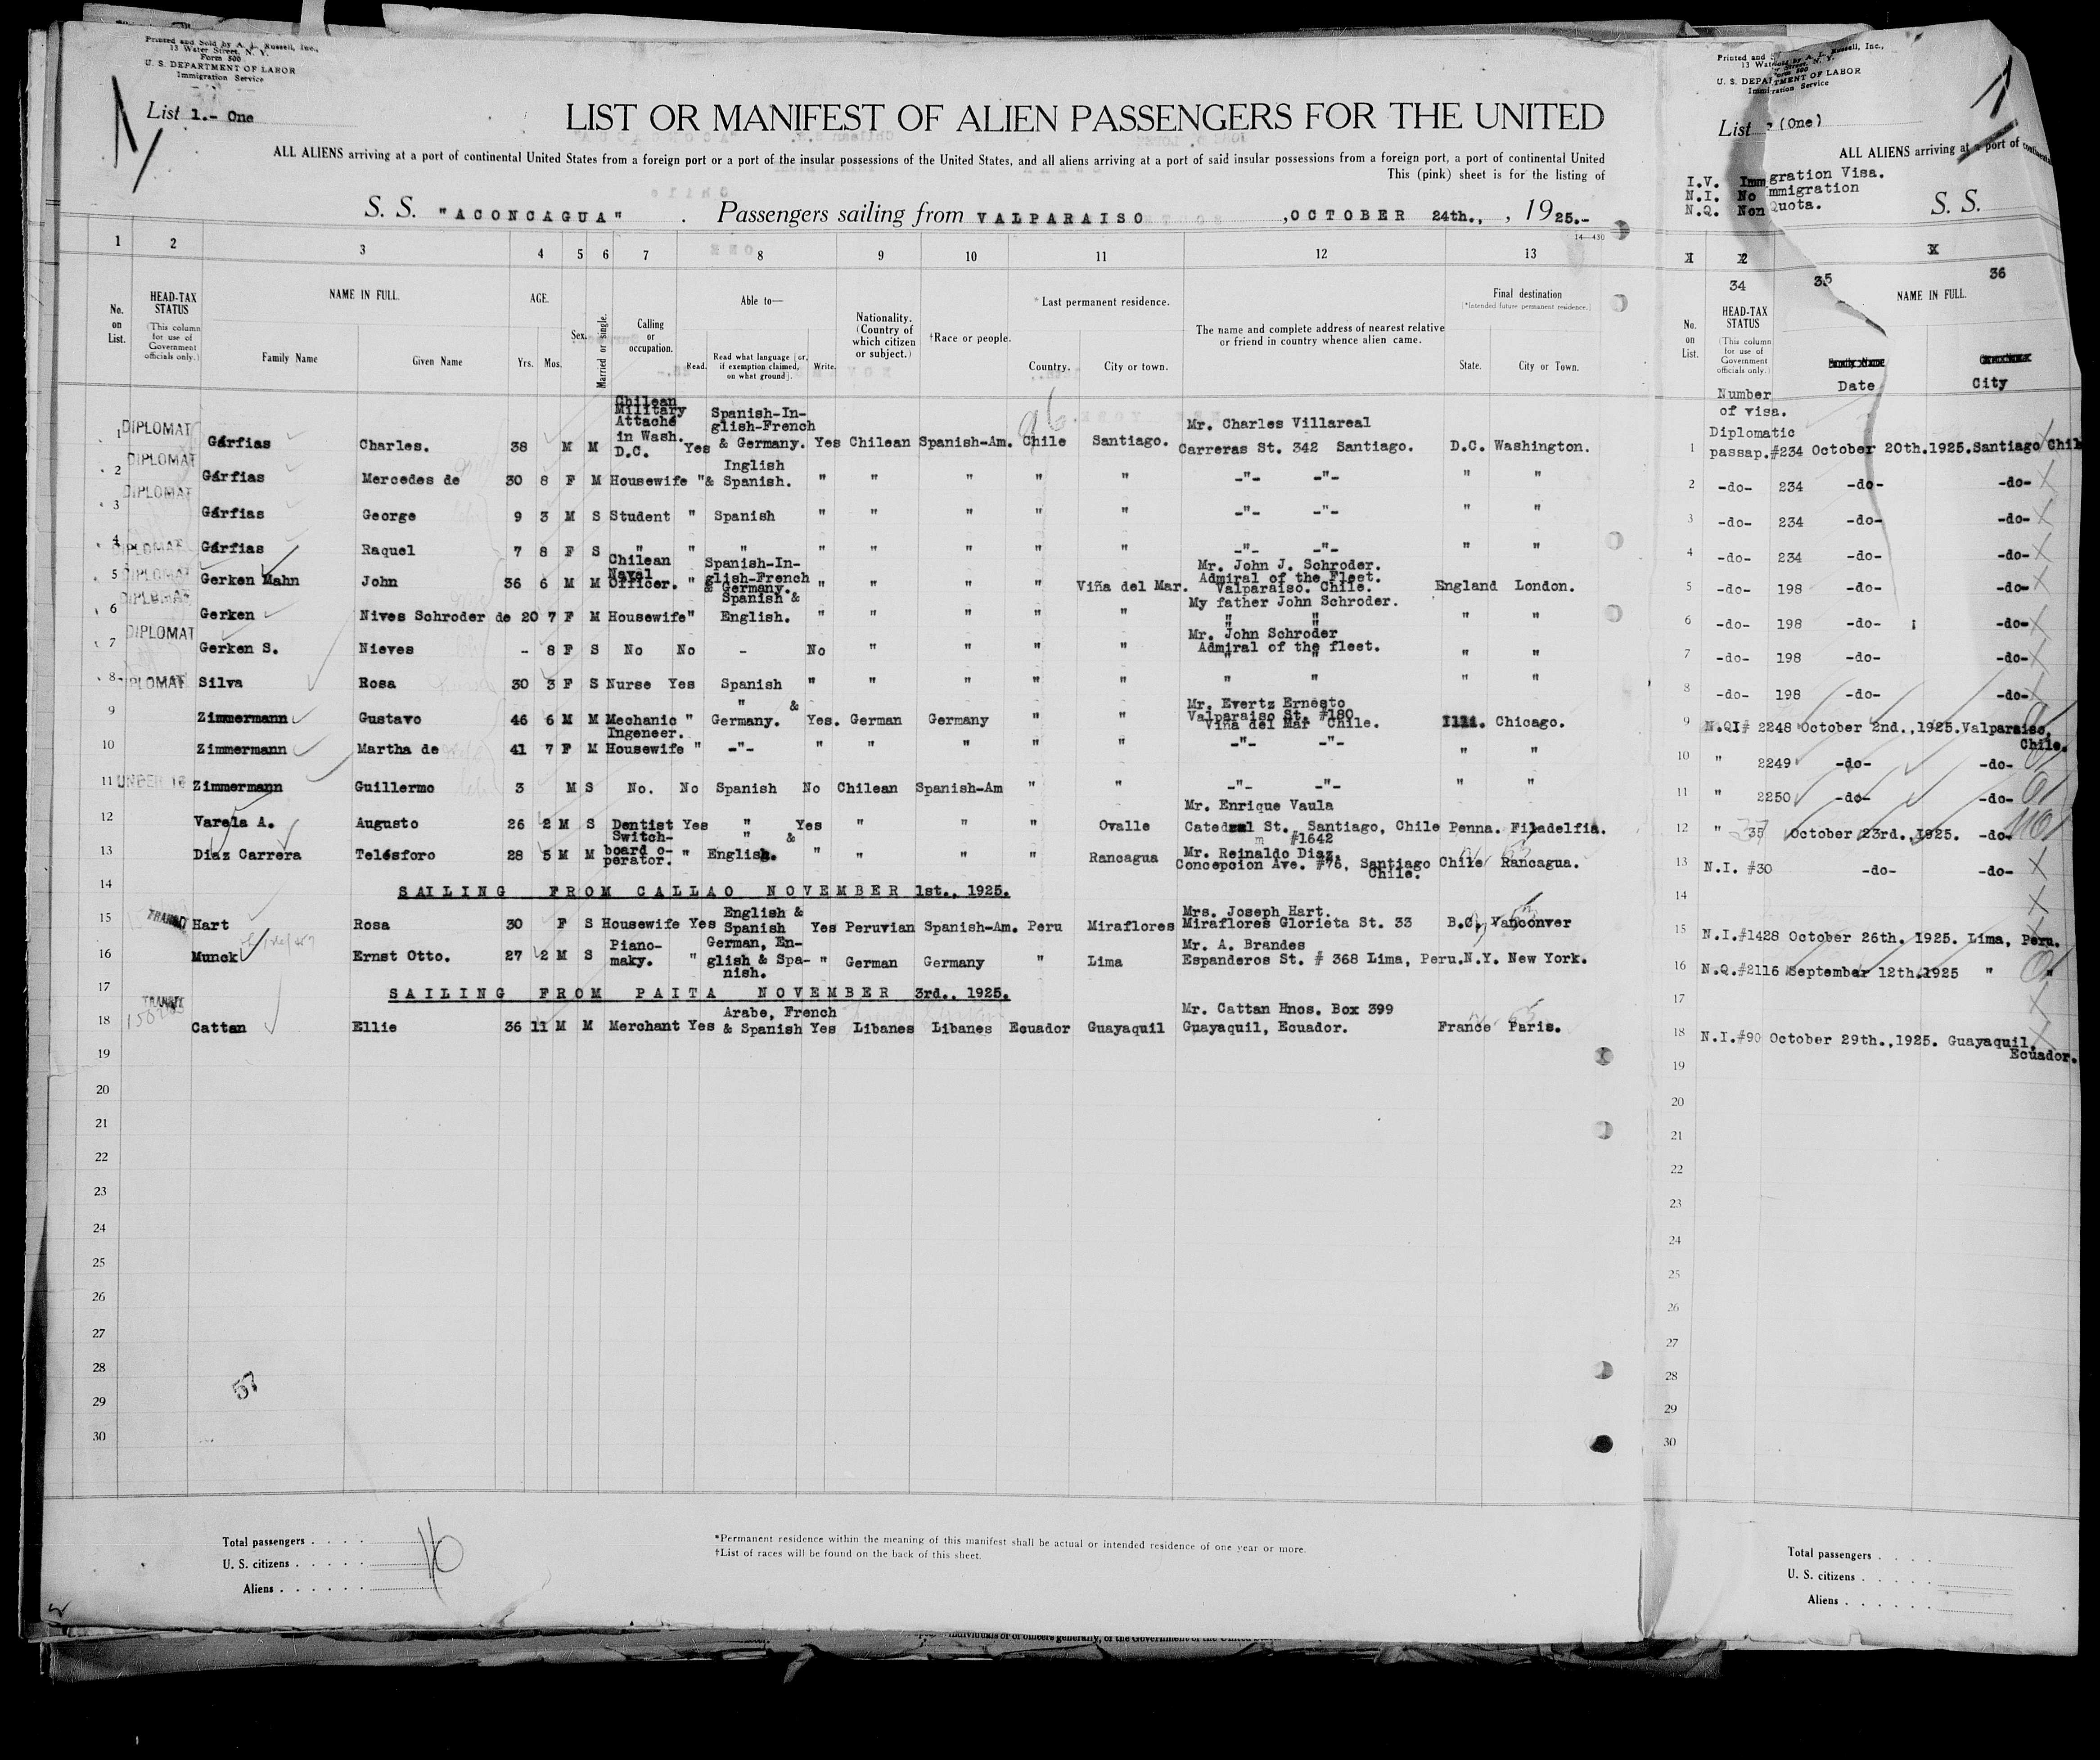 Printed and Sold by A. L. Russell, Inc.,
13 Water Street, N. Y.
Form 500
U. S. DEPARTMENT OF LABOR
Immigration Service
List 1.- One
LIST OR MANIFEST OF ALIEN PASSENGERS FOR THE UNITED
ALL ALIENS arriving at a port of continental United States from a foreign port or a port of the insular possessions of the United States, and all aliens arriving at a port of said insular possessions from a foreign port, a port of continental United
This (pink) sheet is for the listing of
S. S. "ACONCAGUA" . Passengers sailing from VALPARAISO ,OCTOBER 24th., , 1925.-
14-430
1 2 3 4 5 6 7 8 9 10 11 12 13
No. on List.
HEAD-TAX STATUS
(This column for use of Government officials only.)
NAME IN FULL.
Family Name
Given Name
AGE.
Yrs. Mos.
Sex.
Married or single.
Calling or occupation.
Able to—
Read.
Read what language [or, if exemption claimed, on what ground].
Write.
Nationality. (Country of which citizen or subject.)
†Race or people.
*Last permanent residence.
Country. City or town.
The name and complete address of nearest relative or friend in country whence alien came.
Final destination
(*Intended future permanent residence.)
State. City or Town.
1 DIPLOMAT Gárfias Charles. 38 M M Chilean Military Attaché in Wash. D.C. Yes Spanish-In-glish-French & Germany. Yes Chilean Spanish-Am. Chile Santiago. Mr. Charles Villareal Carreras St. 342 Santiago. D.C. Washington.
2 DIPLOMAT Gárfias Mercedes de 30 8 F M Housewife " Inglish & Spanish. " " " " " -"- -"- " "
3 DIPLOMAT Gárfias George 9 3 M S Student " Spanish " " " " " -"- -"- " "
4 DIPLOMAT Gárfias Raquel 7 8 F S " " " " " " " " -"- -"- " "
5 DIPLOMAT Gerken Mahn John 36 6 M M Chilean Naval Officer. " Spanish-In-glish-French & Germany. " " " " Viña del Mar. Mr. John J. Schroder. Admiral of the Fleet. Valparaiso. Chile. England London.
6 DIPLOMAT Gerken Nives Schroder de 20 7 F M Housewife " Spanish & English. " " " " " My father John Schroder. " " " "
7 DIPLOMAT Gerken S. Nieves - 8 F S No No - No " " " " Mr. John Schroder Admiral of the fleet. " "
8 DIPLOMAT Silva Rosa 30 3 F S Nurse Yes Spanish " " " " " " " " "
9 Zimmermann Gustavo 46 6 M M Mechanic Ingeneer. " " & Germany. Yes. German Germany " " Mr. Evertz Ernesto Valparaiso St. #180 Viña del Mar Chile. Illi. Chicago.
10 Zimmermann Martha de 41 7 F M Housewife " -"- " " " " " -"- -"- " "
11 UNDER 16 Zimmermann Guillermo 3 M S No. No Spanish No Chilean Spanish-Am " " -"- -"- " "
12 Varela A. Augusto 26 2 M S Dentist Yes " Yes " " " Ovalle Mr. Enrique Vaula Catedral St. Santiago, Chile #1642 Penna. Filadelfia.
13 Diaz Carrera Telésforo 28 5 M M Switch-board o-perator. " " & English. " " " " Rancagua Mr. Reinaldo Diaz. Concepcion Ave. #76, Santiago Chile. Chile Rancagua.
14 SAILING FROM CALLAO NOVEMBER 1st., 1925.
15 TRANSIT Hart Rosa 30 F S Housewife Yes English & Spanish Yes Peruvian Spanish-Am. Peru Miraflores Mrs. Joseph Hart. Miraflores Glorieta St. 33 B.C. Vanconver
16 Munck Ernst Otto. 27 2 M S Piano-maky. " German, En-glish & Spa-nish. " German Germany " Lima Mr. A. Brandes Espanderos St. # 368 Lima, Peru. N.Y. New York.
17 SAILING FROM PAITA NOVEMBER 3rd., 1925.
18 TRANSIT Cattan Ellie 36 11 M M Merchant Yes Arabe, French & Spanish Yes Libanes Libanes Ecuador Guayaquil Mr. Cattan Hnos. Box 399 Guayaquil, Ecuador. France Paris.
19
20
21
22
23
24
25
26
27
28
29
30
57
Total passengers . . . .
U. S. citizens . . . . .
Aliens . . . . . .
16
*Permanent residence within the meaning of this manifest shall be actual or intended residence of one year or more.
†List of races will be found on the back of this sheet.
Printed and
U. S. DEPARTMENT OF LABOR
Immigration Service
List (One)
ALL ALIENS arriving at a port of
I.V. Immigration Visa.
N.I. No Immigration
N.Q. Non Quota.
S. S.
34 35 36
No. on List.
HEAD-TAX STATUS
(This column for use of Government officials only.)
NAME IN FULL.
Number of visa.
Date
City
1 Diplomatic passap. #234 October 20th.1925. Santiago Chile
2 -do- 234 -do- -do-
3 -do- 234 -do- -do-
4 -do- 234 -do- -do-
5 -do- 198 -do- -do-
6 -do- 198 -do- -do-
7 -do- 198 -do- -do-
8 -do- 198 -do- -do-
9 N.QI# 2248 October 2nd.,1925. Valparaiso, Chile.
10 " 2249 -do- -do-
11 " 2250 -do- -do-
12 " 35 October 23rd., 1925. -do-
13 N.I. #30 -do- -do-
14
15 N.I.#1428 October 26th. 1925. Lima, Peru.
16 N.Q.#2116 September 12th.1925 " "
17
18 N.I.#90 October 29th.,1925. Guayaquil, Ecuador.
19
20
21
22
23
24
25
26
27
28
29
30
Total passengers . . . .
U. S. citizens . . . . .
Aliens . . . . . .